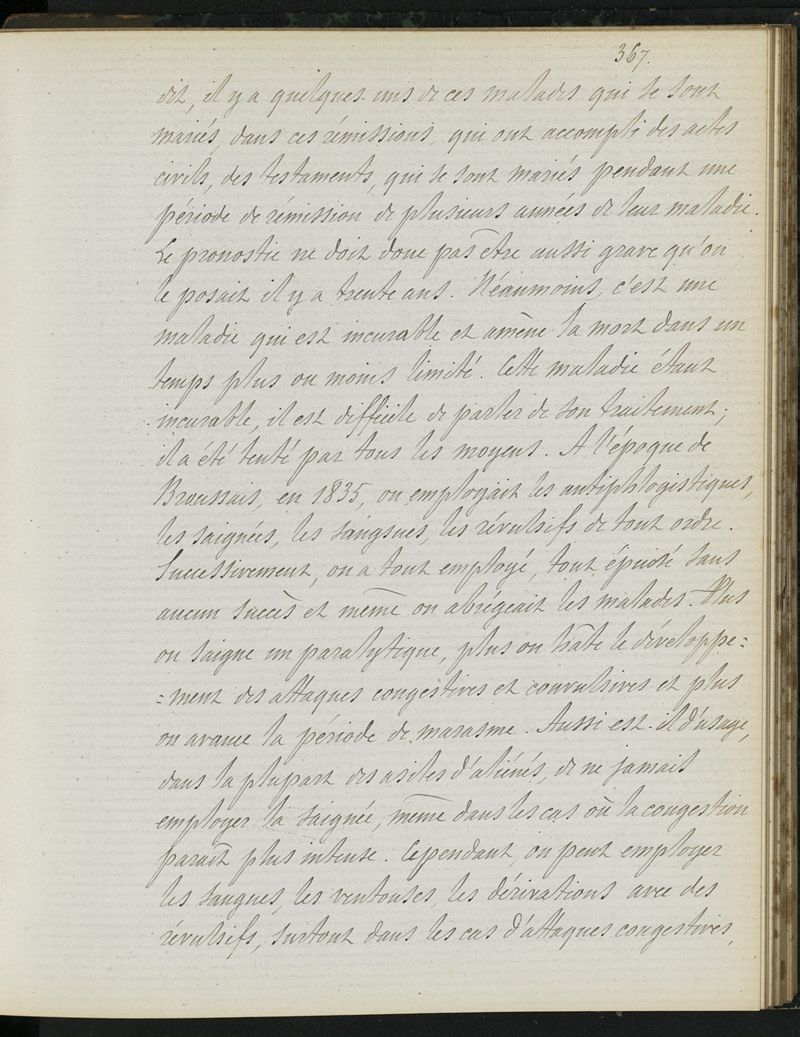 367.
dit, il y a quelques-uns de ces malades qui se sont
mariés, dans ces rémissions, qui ont accompli des actes
civils, des testaments, qui se sont mariés pendant une
période de rémission de plusieurs années de leur maladie.
Le pronostic ne doit donc pas être aussi grave qu'on
le posait il y a trente ans. Néanmoins, c'est une
maladie qui est incurable et amène la mort dans un
temps plus ou moins limité. Cette maladie étant
incurable, il est difficile de parler de son traitement;
il a été tenté par tous les moyens. A l'époque de
Broussais, en 1835, on employait les antiphlogistiques,
les saignées, les sangsues, les révulsifs de tout ordre.
Successivement, on a tout employé, tout épuisé sans
aucun succès et même on abrégeait les malades. Plus
on saigne un paralytique, plus on hâte le développe=
=ment des attaques congestives et convulsives et plus
on avance la période de marasme. Aussi est-il d'usage,
dans la plupart des asiles d'aliénés, de ne jamais
employer la saignée, même dans les cas où la congestion
paraît plus intense. Cependant, on peut employer
les sangues, les ventouses, les dérivations avec des
révulsifs, surtout dans les cas d'attaques congestives,